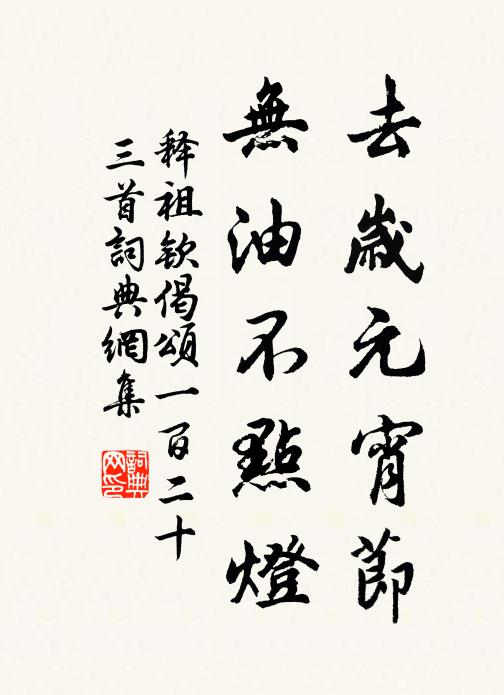 去歲元宵節
無油不點燈
释祖欽偈頌一百二十
三首詞典網集
詞典
网印